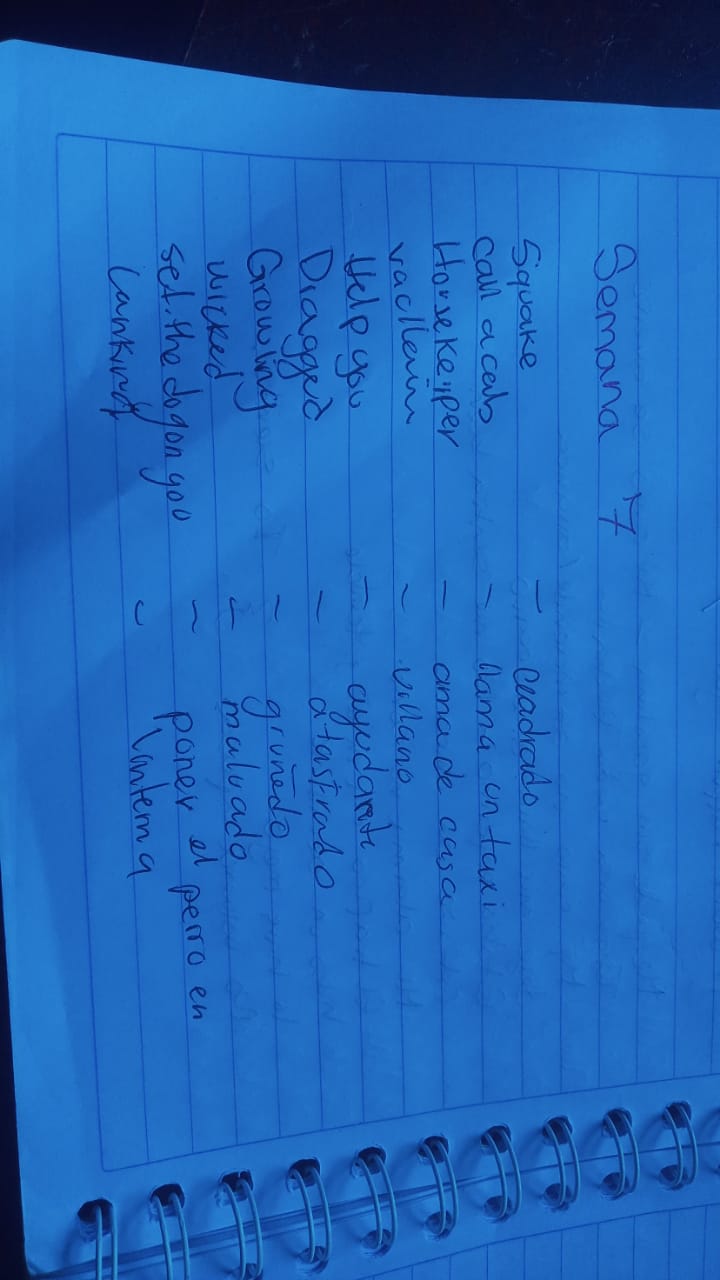 Semana 7
Square - Cuadrado
Call a cab - llama un taxi
Housekeiper - ama de casa
- villano
Help you - ayudarte
Dragged - atastrado
Growling - gruñedo
wicked - malvado
set the dog on you - poner el perro en
- lanterna